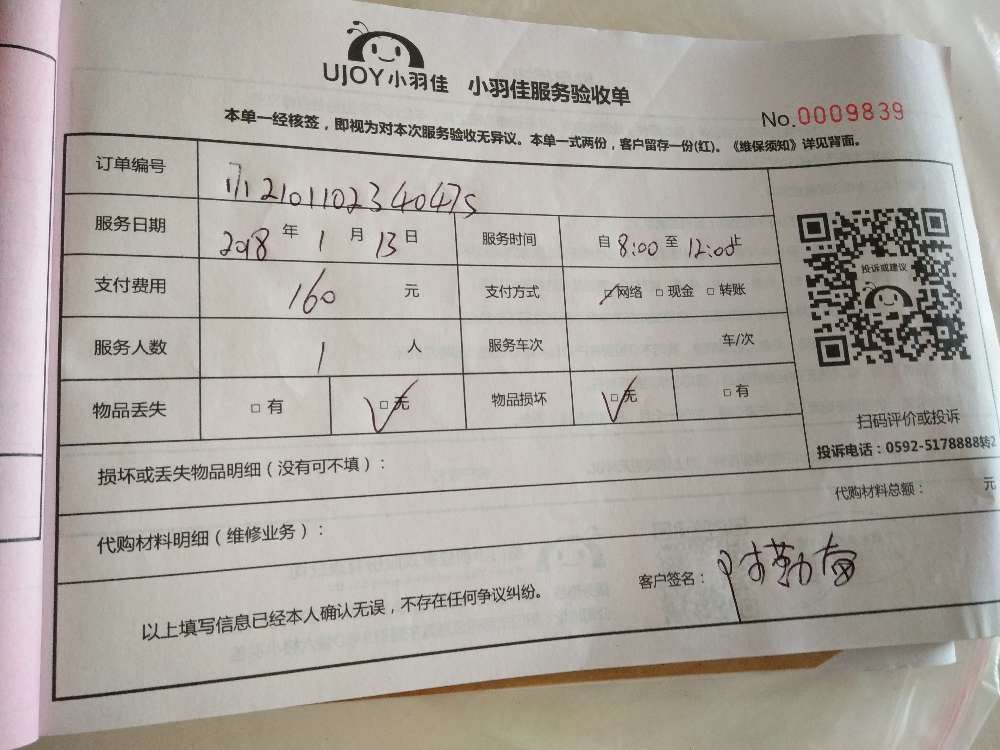 UJOY小羽佳 小羽佳服务验收单
No.0009839
本单一经核签，即视为对本次服务验收无异议。本单一式两份，客户留存一份(红)。《维保须知》详见背面。
订单编号
服务日期 2018 年 1 月 13 日 服务时间 自 8:00 至 12:00止
支付费用 160 元 支付方式 □网络 □现金 □转账
服务人数 1 人 服务车次 车/次
物品丢失 □有 □无 物品损坏 □无 □有
投诉或建议
扫码评价或投诉
投诉电话：0592-5178888转2
损坏或丢失物品明细（没有可不填）：
代购材料明细（维修业务）： 代购材料总额： 元
以上填写信息已经本人确认无误，不存在任何争议纠纷。 客户签名：